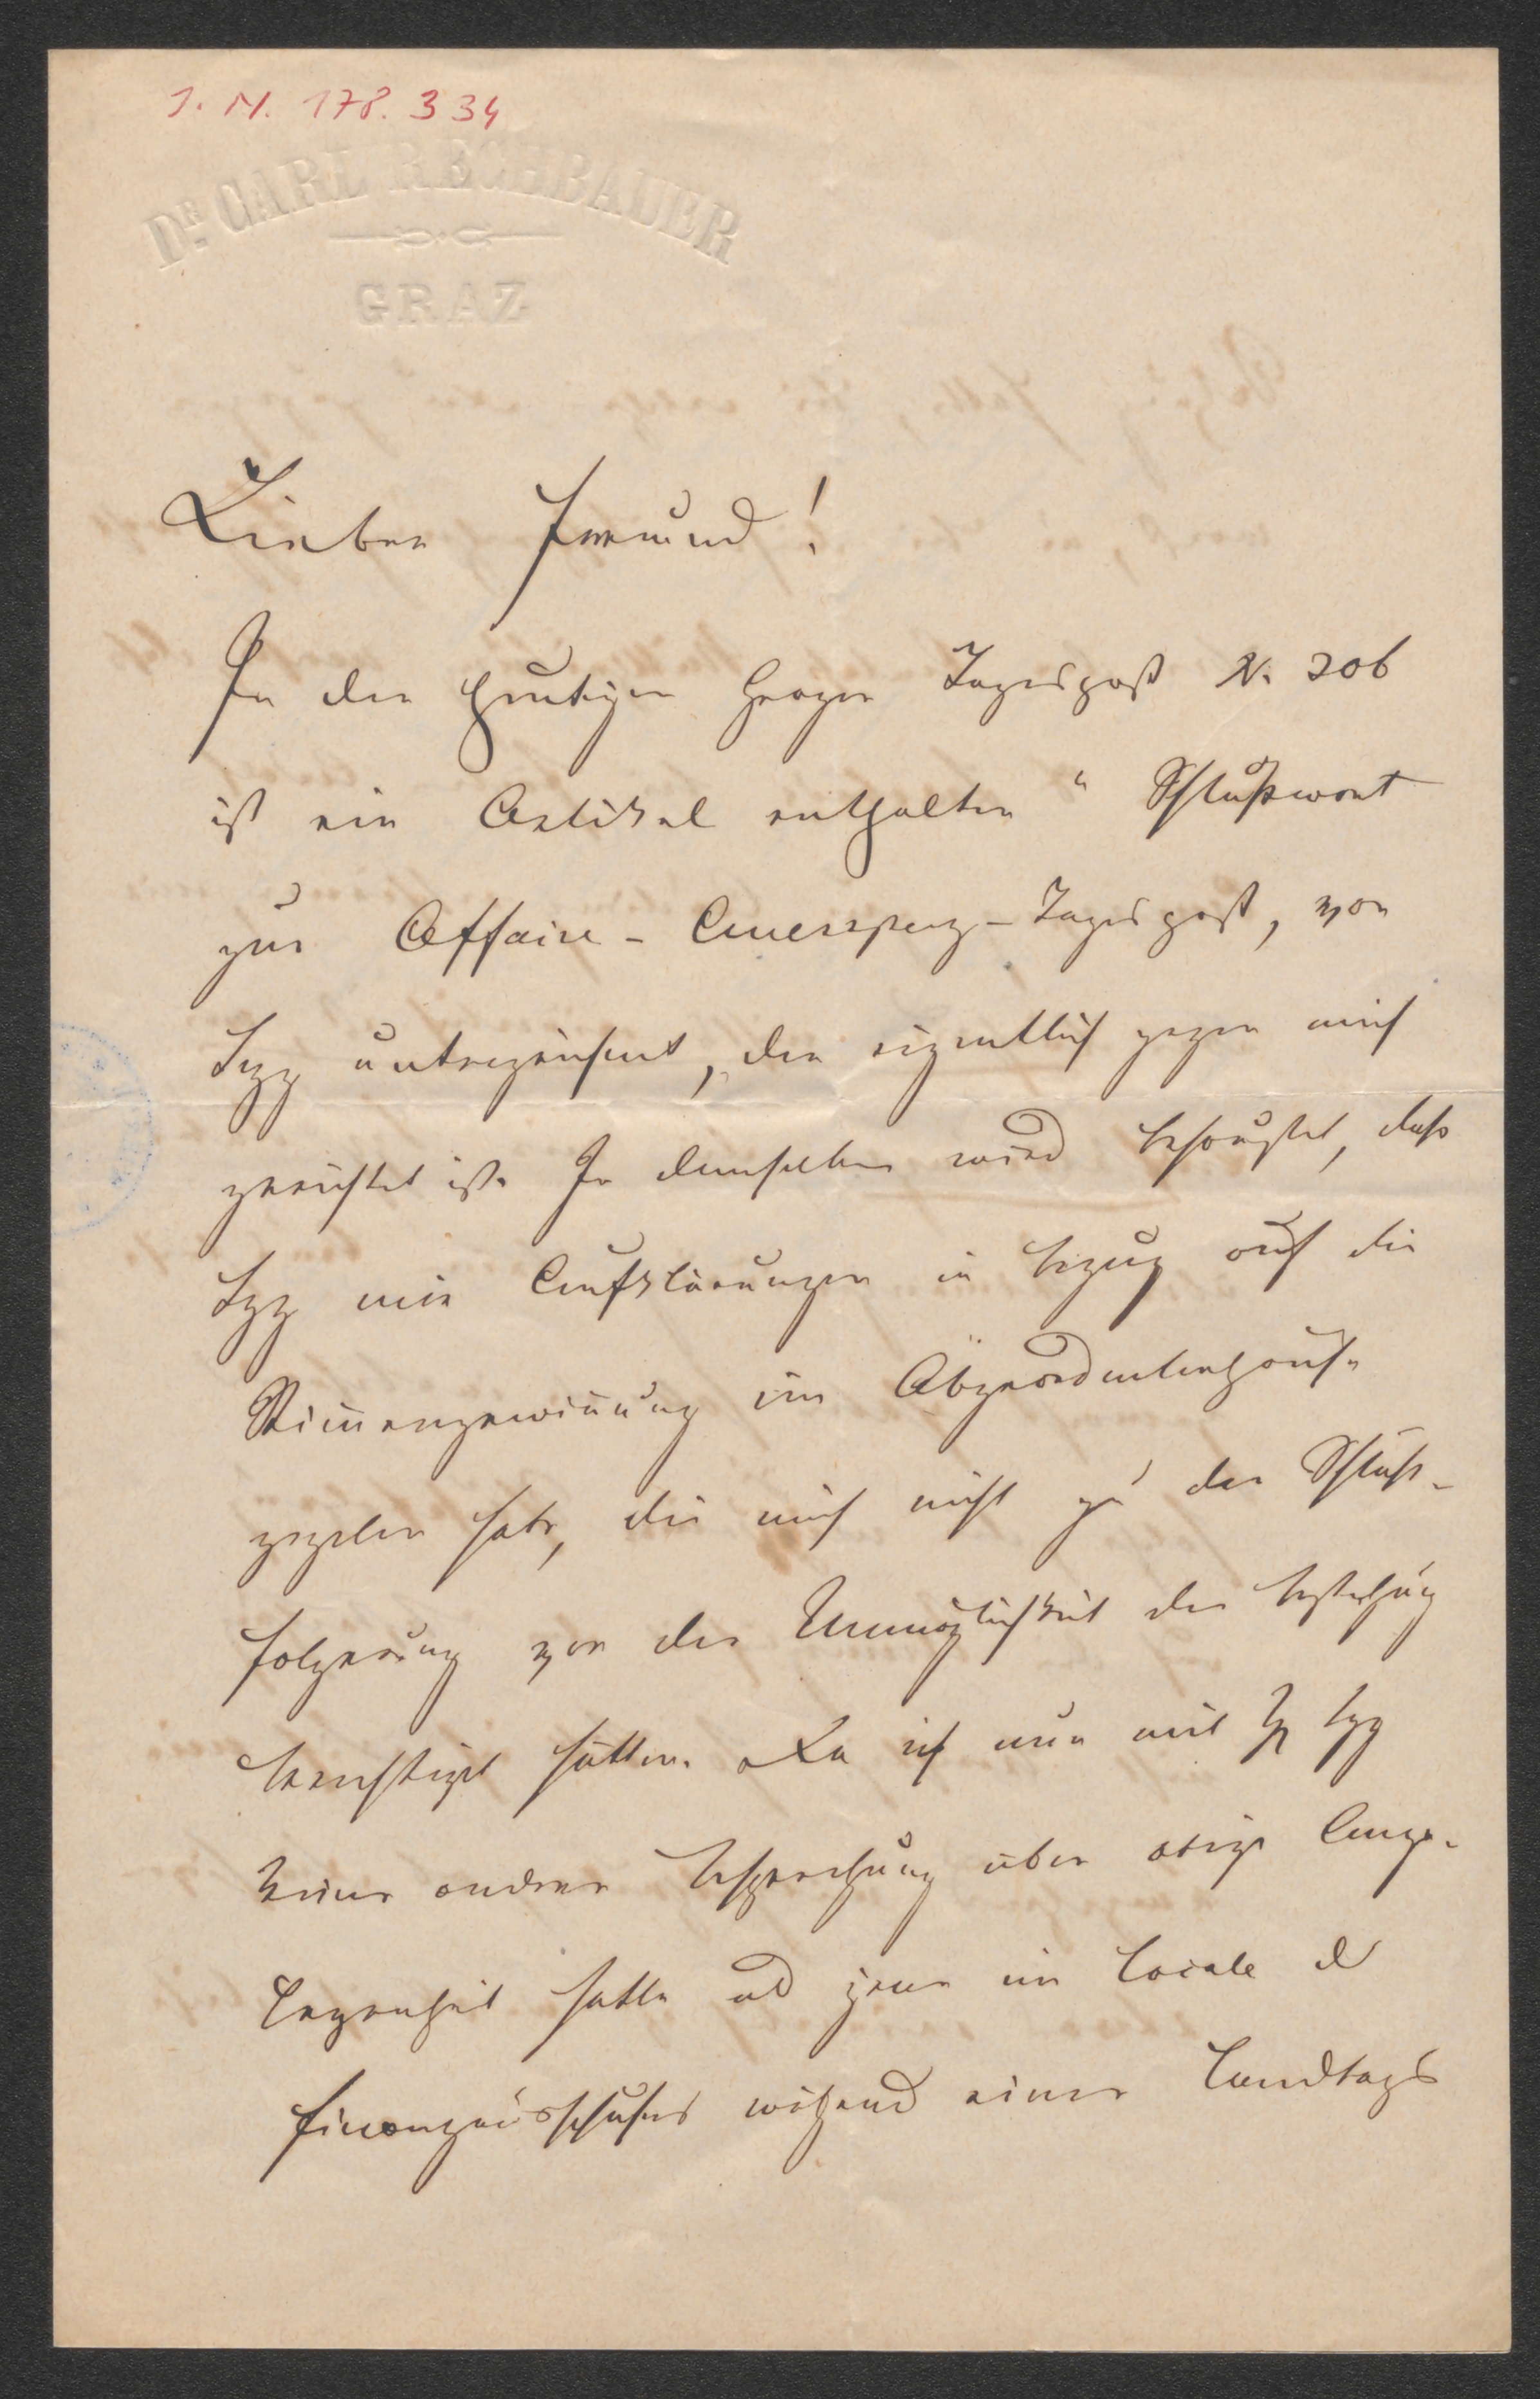 I. N. 178.334
DR. CARL RECHBAUER
GRAZ
Lieber Freund!
In der heutigen Grazer Tagespost N. 206
ist ein Artikel enthalten " Schlußwort
zur Affaire - Auersperg - Tagespost, von
unterzeichnet, der eigentlich gegen mich
gerichtet ist. In demselben wird behauptet, daß
mir Aufklärungen in Bezug auf die
Stimmengewinnung im Abgeordnetenhause
gegeben habe, die mich nicht zu der Schluß-
folgerung von der Unmöglichkeit der Bestechung
berechtigt hätten. Da ich nun mit
keine andere Besprechung über obige Ange-
legenheit hatte als jene im Locale d
Finanzausschußes während einer Landtags